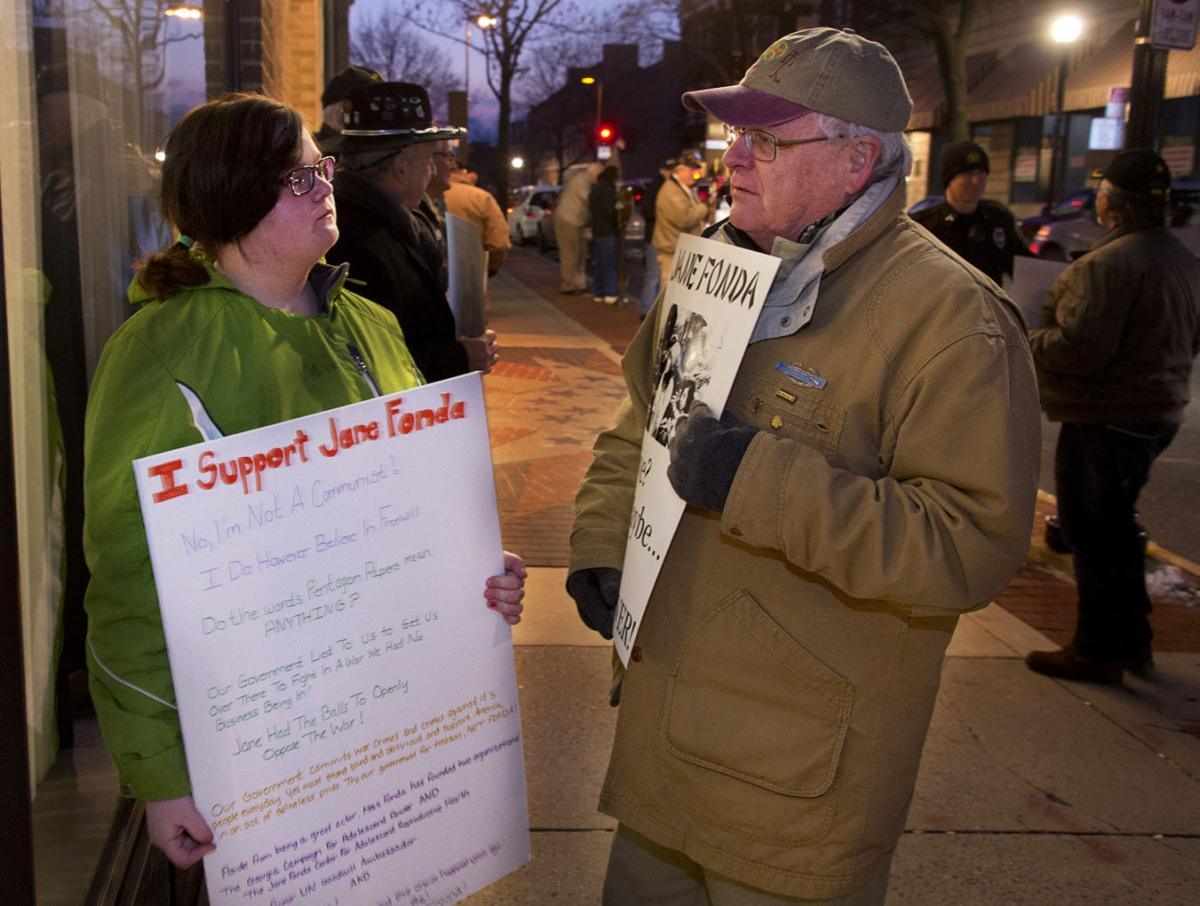 I Support Jane Fonda
No, I'm Not A Communist!
I Do However Believe In Freewill
Do the words Pentagon Papers mean
ANYTHING?
Our Government Lied To Us to Get Us
Over There To Fight In A War We Had No
Business Being In!
Jane Had The Balls To Openly
Oppose The War!
Our Government commits war crimes and crimes against it's
people everyday. Yet most stand blind and oblivious and support America,
in an act of spineless pride. Try our government for treason, NOT FONDA!
Aside from being a great actor, Miss Fonda has founded two organizations!
The Georgia Campaign For Adolescent Power AND
The Jane Fonda Center For Adolescent Reproductive Health
UN Goodwill Ambassador
AND
JANE FONDA
ER!